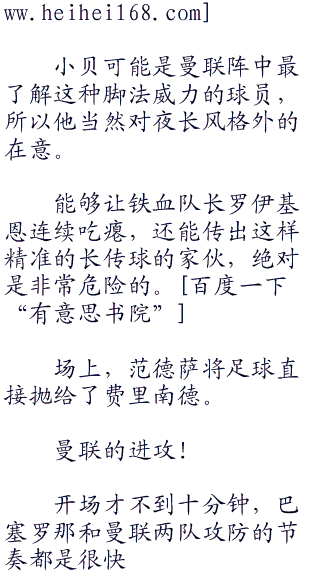 ww.heihei168.com]
小贝可能是曼联阵中最
了解这种脚法威力的球员，
所以他当然对夜长风格外的
在意。
能够让铁血队长罗伊基
恩连续吃瘪，还能传出这样
精准的长传球的家伙，绝对
是非常危险的。[百度一下
“有意思书院”]
场上，范德萨将足球直
接抛给了费里南德。
曼联的进攻！
开场才不到十分钟，巴
塞罗那和曼联两队攻防的节
奏都是很快